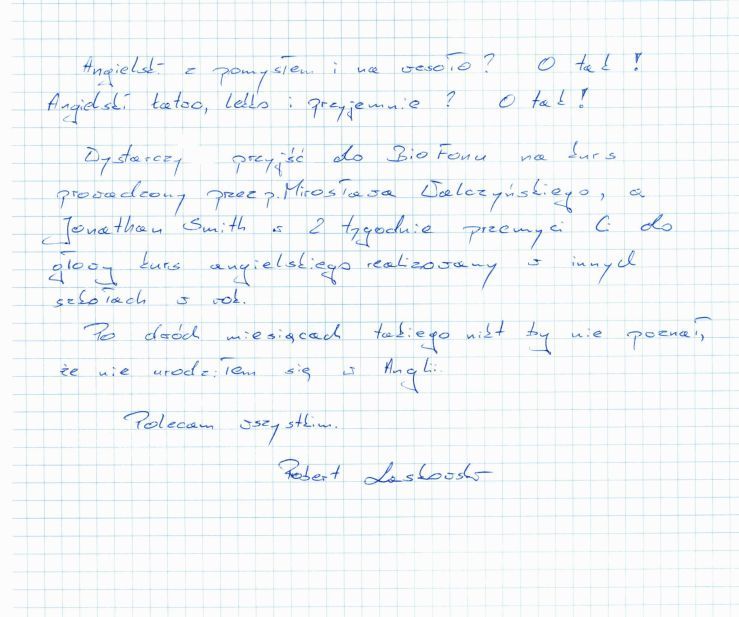 Angielski z pomysłem i na wesoło? O tak!
Angielski łatwo, lekko i przyjemnie? O tak!
Wystarczy przyjść do BioFonu na kurs
prowadzony przez p. Mirosława Walczyńskiego, a
Jonathan Smith w 2 tygodnie przemyci Ci do
głowy kurs angielskiego realizowany w innych
szkołach w rok.
Po dwóch miesiącach takiego nikt by nie poznał,
że nie urodziłem się w Anglii.
Polecam wszystkim.
Robert Laskowski